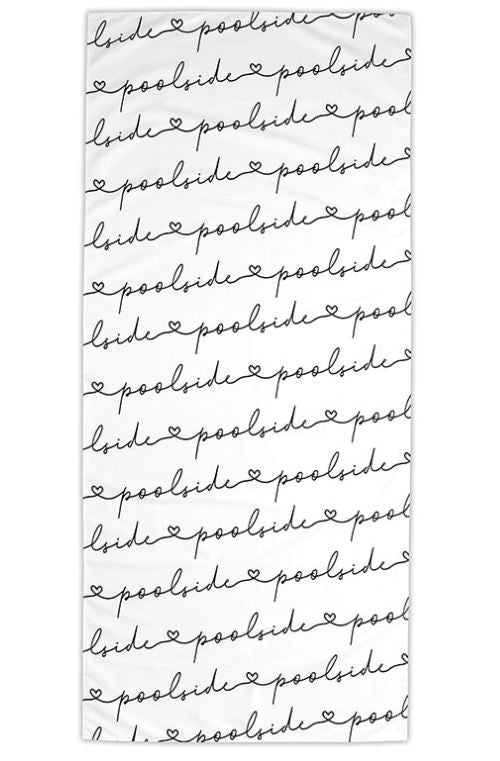 lside poolside p
poolside poolside
lside poolside pool
poolside poolside
lside poolside pool
poolside poolside
lside poolside pool
poolside poolside
lside poolside pool
poolside poolside
lside poolside pool
poolside poolside
lside poolside pool
poolside poolside
lside poolside pool